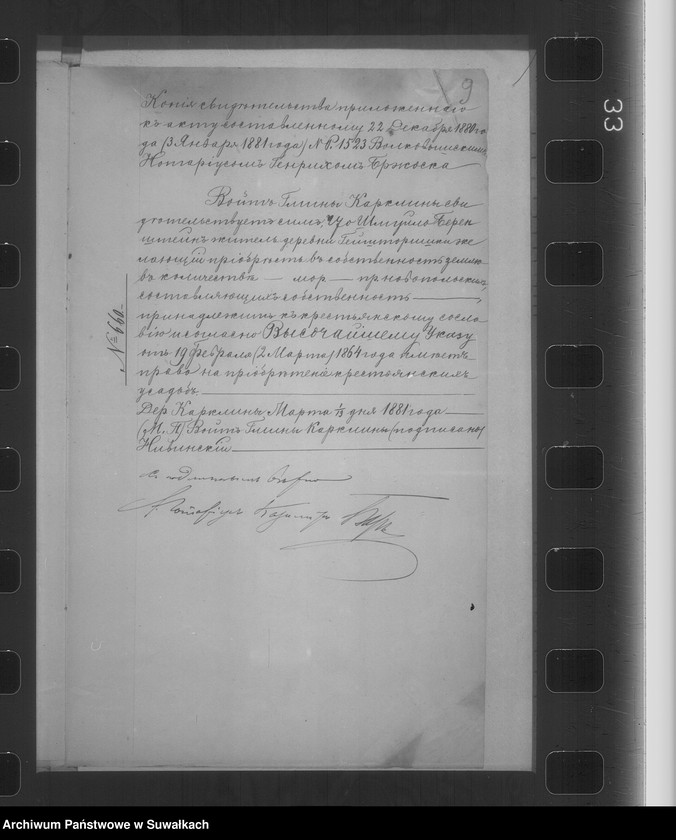 9
33
Копія свидѣтельства приложеннаго
къ акту составленному 22 Декабря 1880 го
да (3 Января 1881 года) № Р. 1523 Волковышскимъ
Нотаріусомъ Генрихомъ Бржоска
Войтъ Гмины Карклины сви
дѣтельствуетъ симъ, что Шмуйло Берен
штейнъ житель деревни Гейшторишки же
лающій пріобрѣсть въ собственность землю
въ количествѣ — мор —
составляющихъ собственность
принадлежитъ къ крестьянскому сосло
вію и согласно Высочайшему Указу
отъ 19 Февраля (2 Марта) 1864 года имѣетъ
право на пріобрѣтеніе крестьянскихъ
усадьбъ.
№ 660.
Дер. Карклины Марта 1/13 дня 1881 года
(М. П.) Войтъ Гмины Карклины (подписано)
Нивинскій
Съ подлиннымъ вѣрно
Нотаріусъ
Archiwum Państwowe w Suwałkach